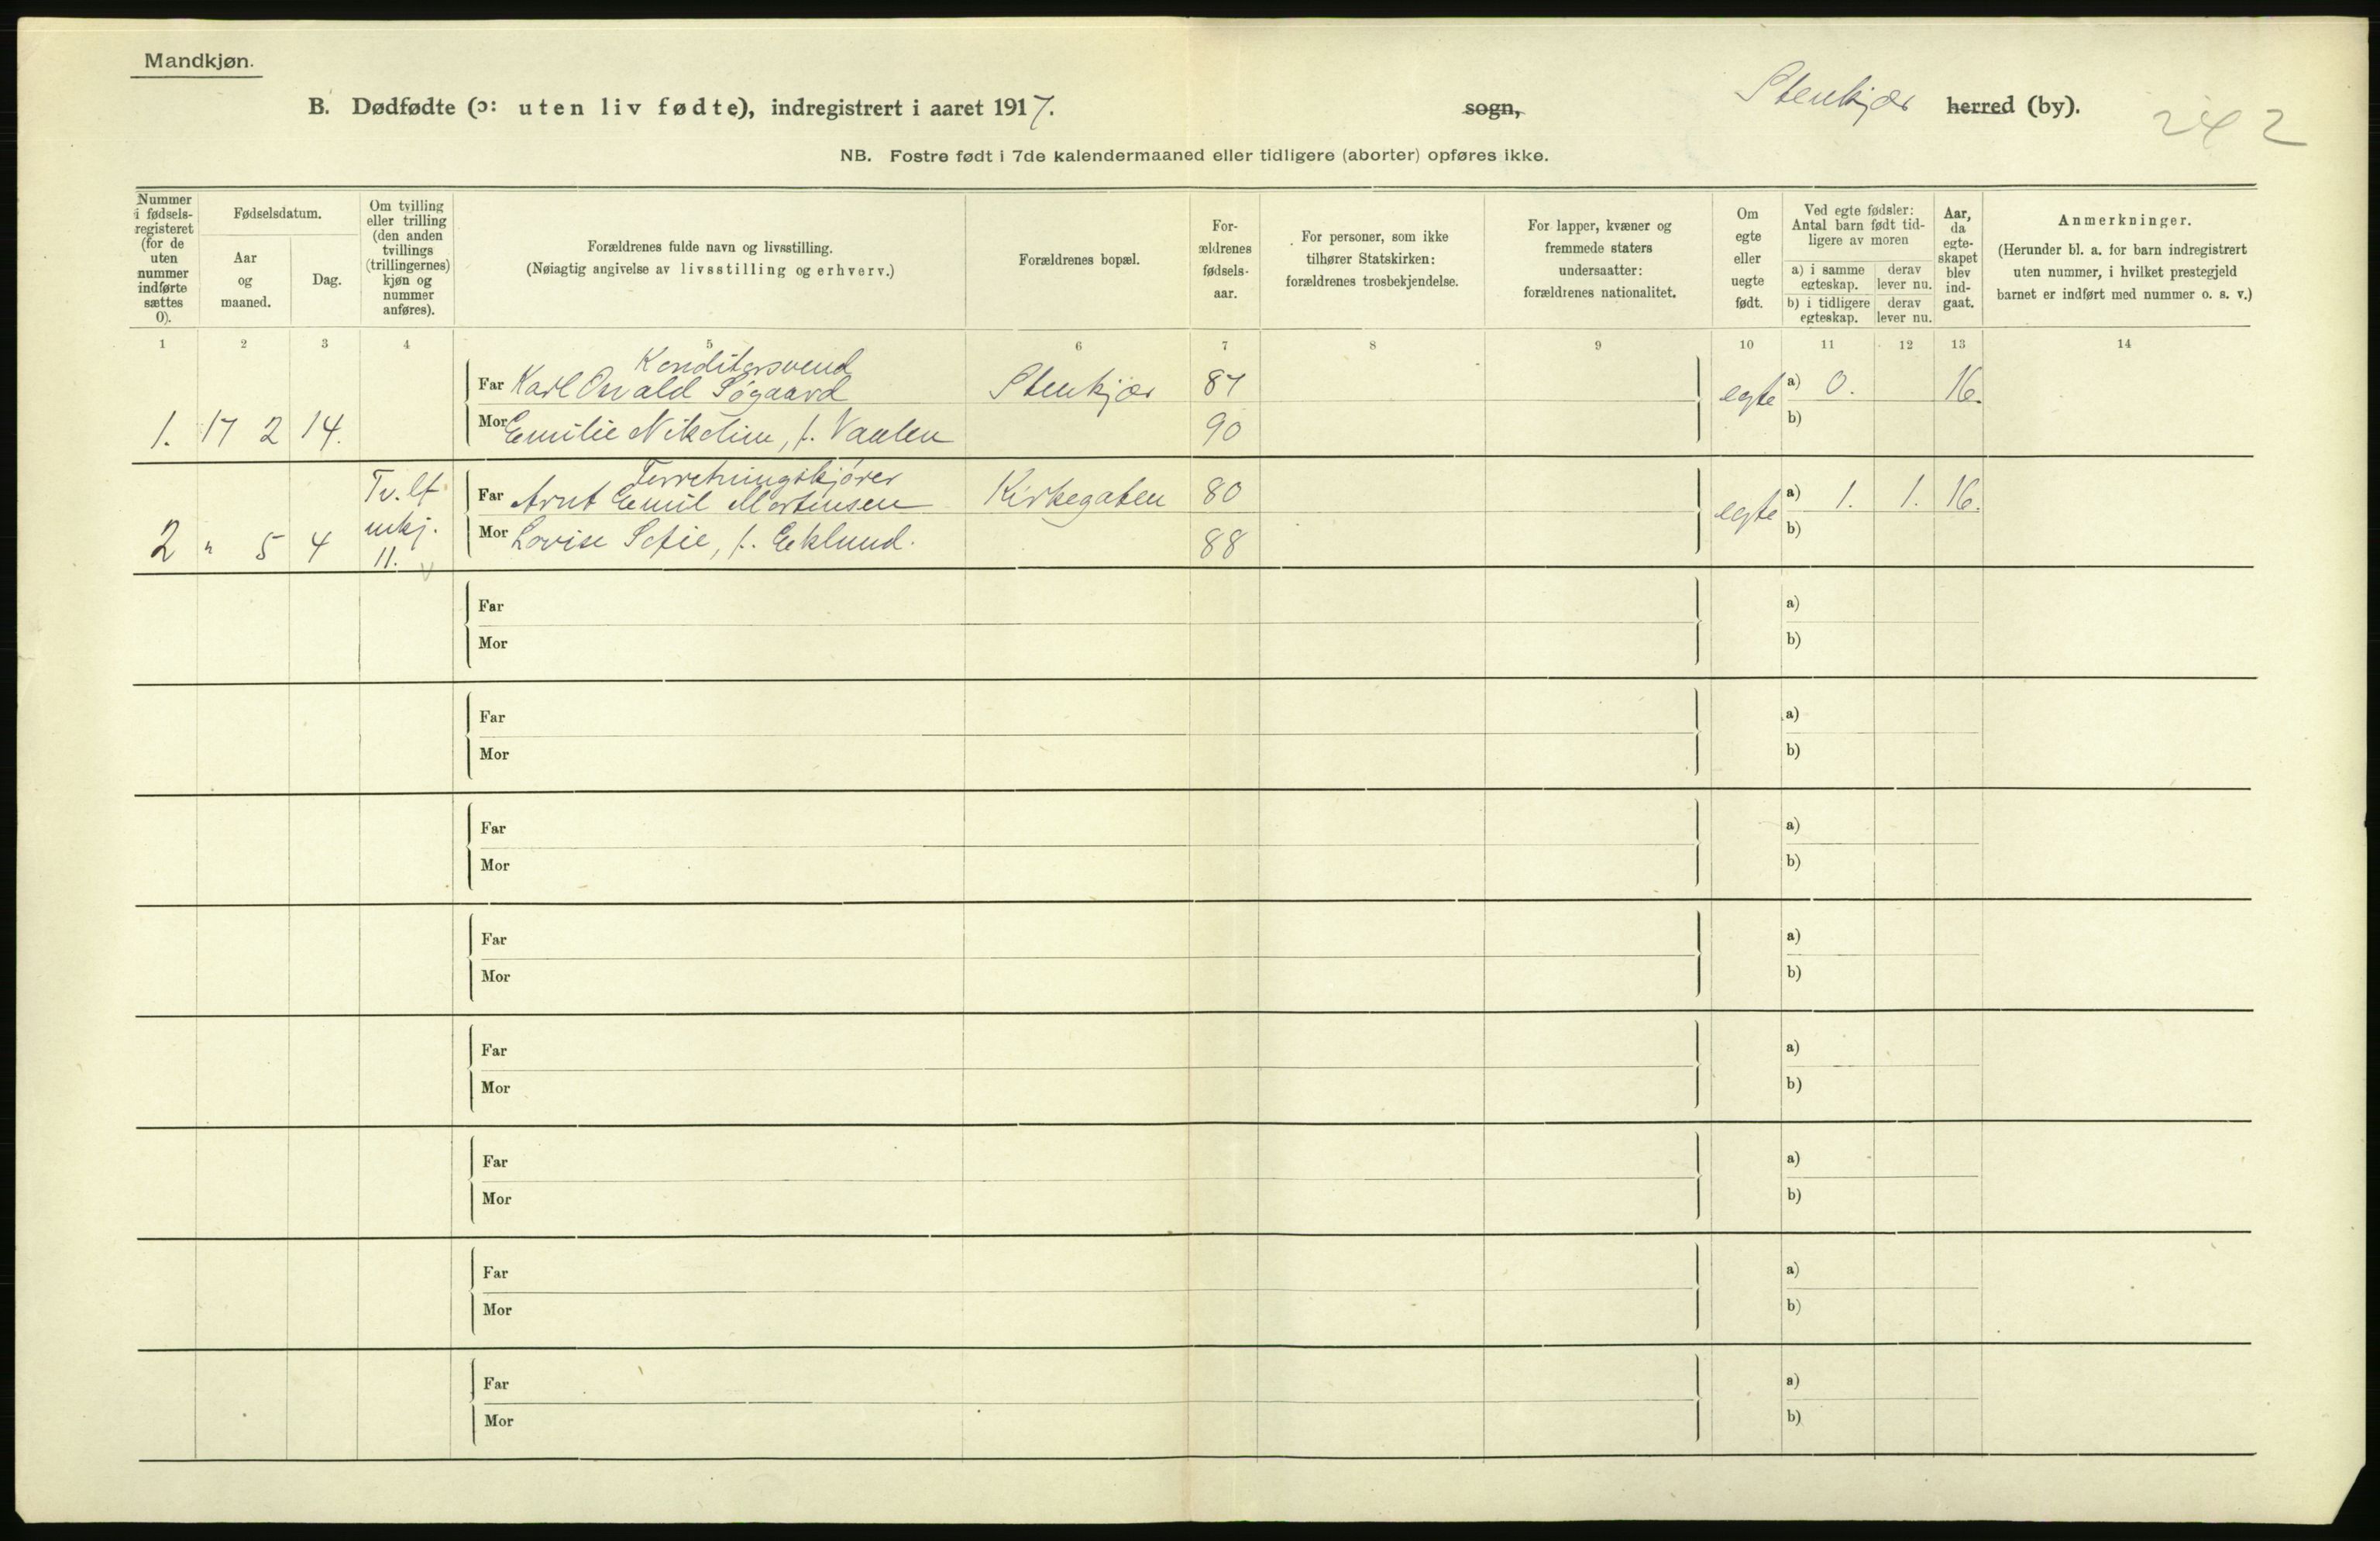 Mandkjøn.
B. Dødfødte (ɔ: uten liv fødte), indregistrert i aaret 1917. sogn, Stenkjær herred (by).
242
NB. Fostre født i 7de kalendermaaned eller tidligere (aborter) opføres ikke.
Nummer i fødsels-registeret (for de uten nummer indførte sættes 0).
Fødselsdatum.
Aar og maaned.
Dag.
Om tvilling eller trilling (den anden tvillings (trillingernes) kjøn og nummer anføres).
Forældrenes fulde navn og livsstilling.
(Nøiagtig angivelse av livsstilling og erhverv.)
Forældrenes bopæl.
For-ældrenes fødsels-aar.
For personer, som ikke tilhører Statskirken: forældrenes trosbekjendelse.
For lapper, kvæner og fremmede staters undersaatter: forældrenes nationalitet.
Om egte eller uegte født.
Ved egte fødsler: Antal barn født tid-ligere av moren
a) i samme egteskap.
derav lever nu.
b) i tidligere egteskap.
derav lever nu.
Aar, da egte-skapet blev ind-gaat.
Anmerkninger.
(Herunder bl. a. for barn indregistrert uten nummer, i hvilket prestegjeld barnet er indført med nummer o. s. v.)
1 2 3 4 5 6 7 8 9 10 11 12 13 14
Konditorsvend
Far Karl Osvald Søgaard Stenkjær 87 egte a) 0. 16.
1. 17 2 14. Mor Emilie Nikoline, f. Vaalen 90 b)
Tv. lf. mkj. 11.
Forretningskjører
Far Arnt Emil Mortinsen Kirkegaten 80 egte a) 1. 1. 16.
2 " 5 4 Mor Lovise Sofie, f. Eeklund. 88 b)
Far a)
Mor b)
Far a)
Mor b)
Far a)
Mor b)
Far a)
Mor b)
Far a)
Mor b)
Far a)
Mor b)
Far a)
Mor b)
Far a)
Mor b)